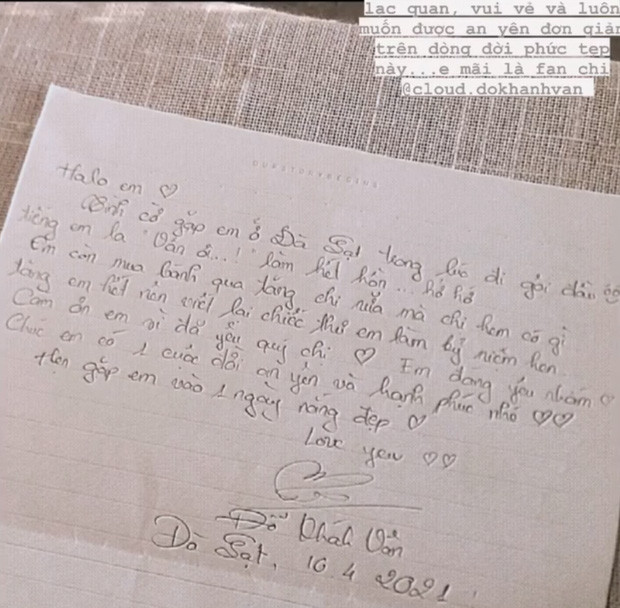 lạc quan, vui vẻ và luôn
muốn được an yên đơn giản
trên dòng đời phức tạp
này...e mãi là fan chị
@cloud.dokhanhvan
Halo em ♡
Tình cờ gặp em ở Đà Lạt trong lúc đi gội đầu
tiếng em la "Vân ơi...!" làm hết hồn... hớ hớ
Em còn mua bánh qua tặng chị nữa mà chị hem có gì
tặng em hết nên viết lại chiếc thư em làm kỷ niệm hen.
Cảm ơn em vì đã yêu quý chị ♡ Em đáng yêu nhắm ♡
Chúc em có 1 cuộc đời an yên và hạnh phúc nhó ♡♡
Hẹn gặp em vào 1 ngày nắng đẹp ♡
Love you ♡♡
Đỗ Khánh Vân
Đà Lạt, 10 4 2021